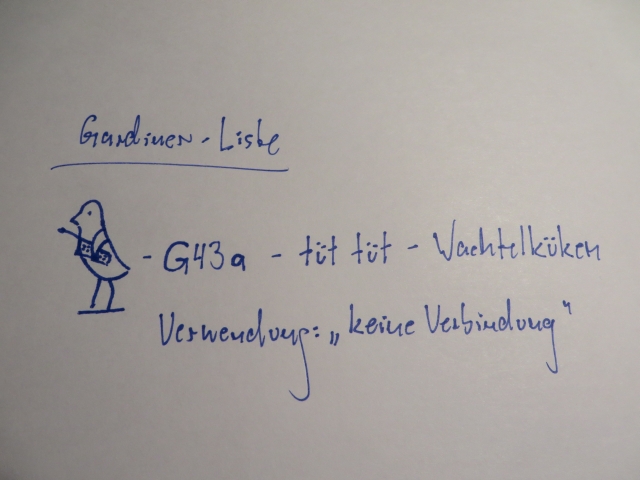 Gardiner-Liste
- G43a - tüt tüt - Wachtelküken
Verwendung: „keine Verbindung"